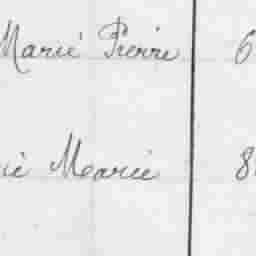 Marie Pierre 6
ie Marie 8